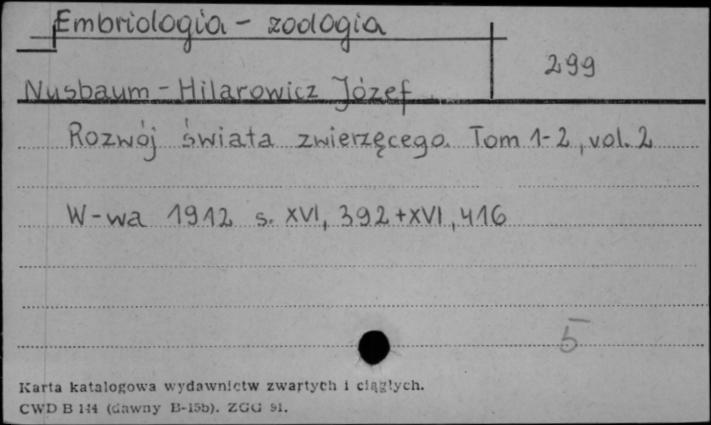 Embriologia - zoologia
299
Nusbaum - Hilarowicz Józef
Rozwój świata zwierzęcego. Tom 1-2, vol. 2
W-wa 1912 s. XVI, 392+XVI, 416
5
Karta katalogowa wydawnictw zwartych i ciągłych.
CWD B 144 (dawny B-15b). ZGG 91.